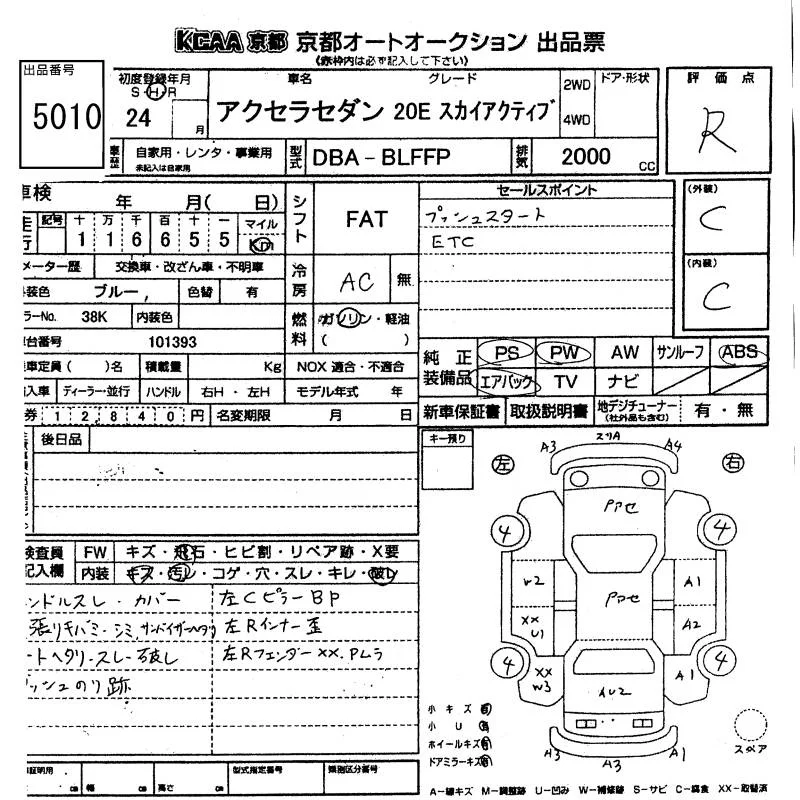 KCAA 京都 京都オートオークション 出品票
《赤枠内は必ず記入して下さい》
出品番号
5010
初度登録年月
S・H・R
24 月
車名 グレード
アクセラセダン 20E スカイアクティブ
2WD
4WD
ドア・形状
評価点
R
車歴 自家用・レンタ・事業用
未記入は自家用
型式 DBA-BLFFP
排気 2000 CC
車検 年 月( 日)
走行 記号 十 万 千 百 十 一 マイル
1 1 6 6 5 5 Km
メーター歴 交換車・改ざん車・不明車
外装色 ブルー, 色替 有
カラーNo. 38K 内装色
車台番号 101393
乗車定員( )名 積載量 Kg
輸入車 ディーラー・並行 ハンドル 右H・左H
券 12840円 名変期限 月 日
シフト FAT
冷房 AC 無
燃料 ガソリン・軽油
( )
NOX 適合・不適合
モデル年式 年
セールスポイント
プッシュスタート
ETC
(外装)
C
(内装)
C
純正装備品 PS PW AW サンルーフ ABS
エアバック TV ナビ
新車保証書 取扱説明書 地デジチューナー(社外品も含む) 有・無
後日品
キー預り
検査員記入欄 FW キズ・飛石・ヒビ割・リペア跡・X要
内装 キズ・汚レ・コゲ・穴・スレ・キレ・破レ
ンドルスレ・カバー
張リキバミ・シミ,サンバイザーヘタリ
ートヘタリ・スレ・破し
ッシュのり跡
左CピラーBP
左Rインナー歪
左Rフェンダー××,Pムラ
左 右
A3 スリA A4
Pアセ
4 4
W2 PアセA1
××
U1 A2
4 4
××
W3 AU2 A1
A3 A3 A1
スペア
小キズ有
小U有
ホイールキズ有
ドアミラーキズ有
証明用 cm 幅 cm 高さ cm 型式指定番号 類別区分番号
A-線キズ M-調整跡 U-凹み W-補修跡 S-サビ C-腐食 XX-取替済